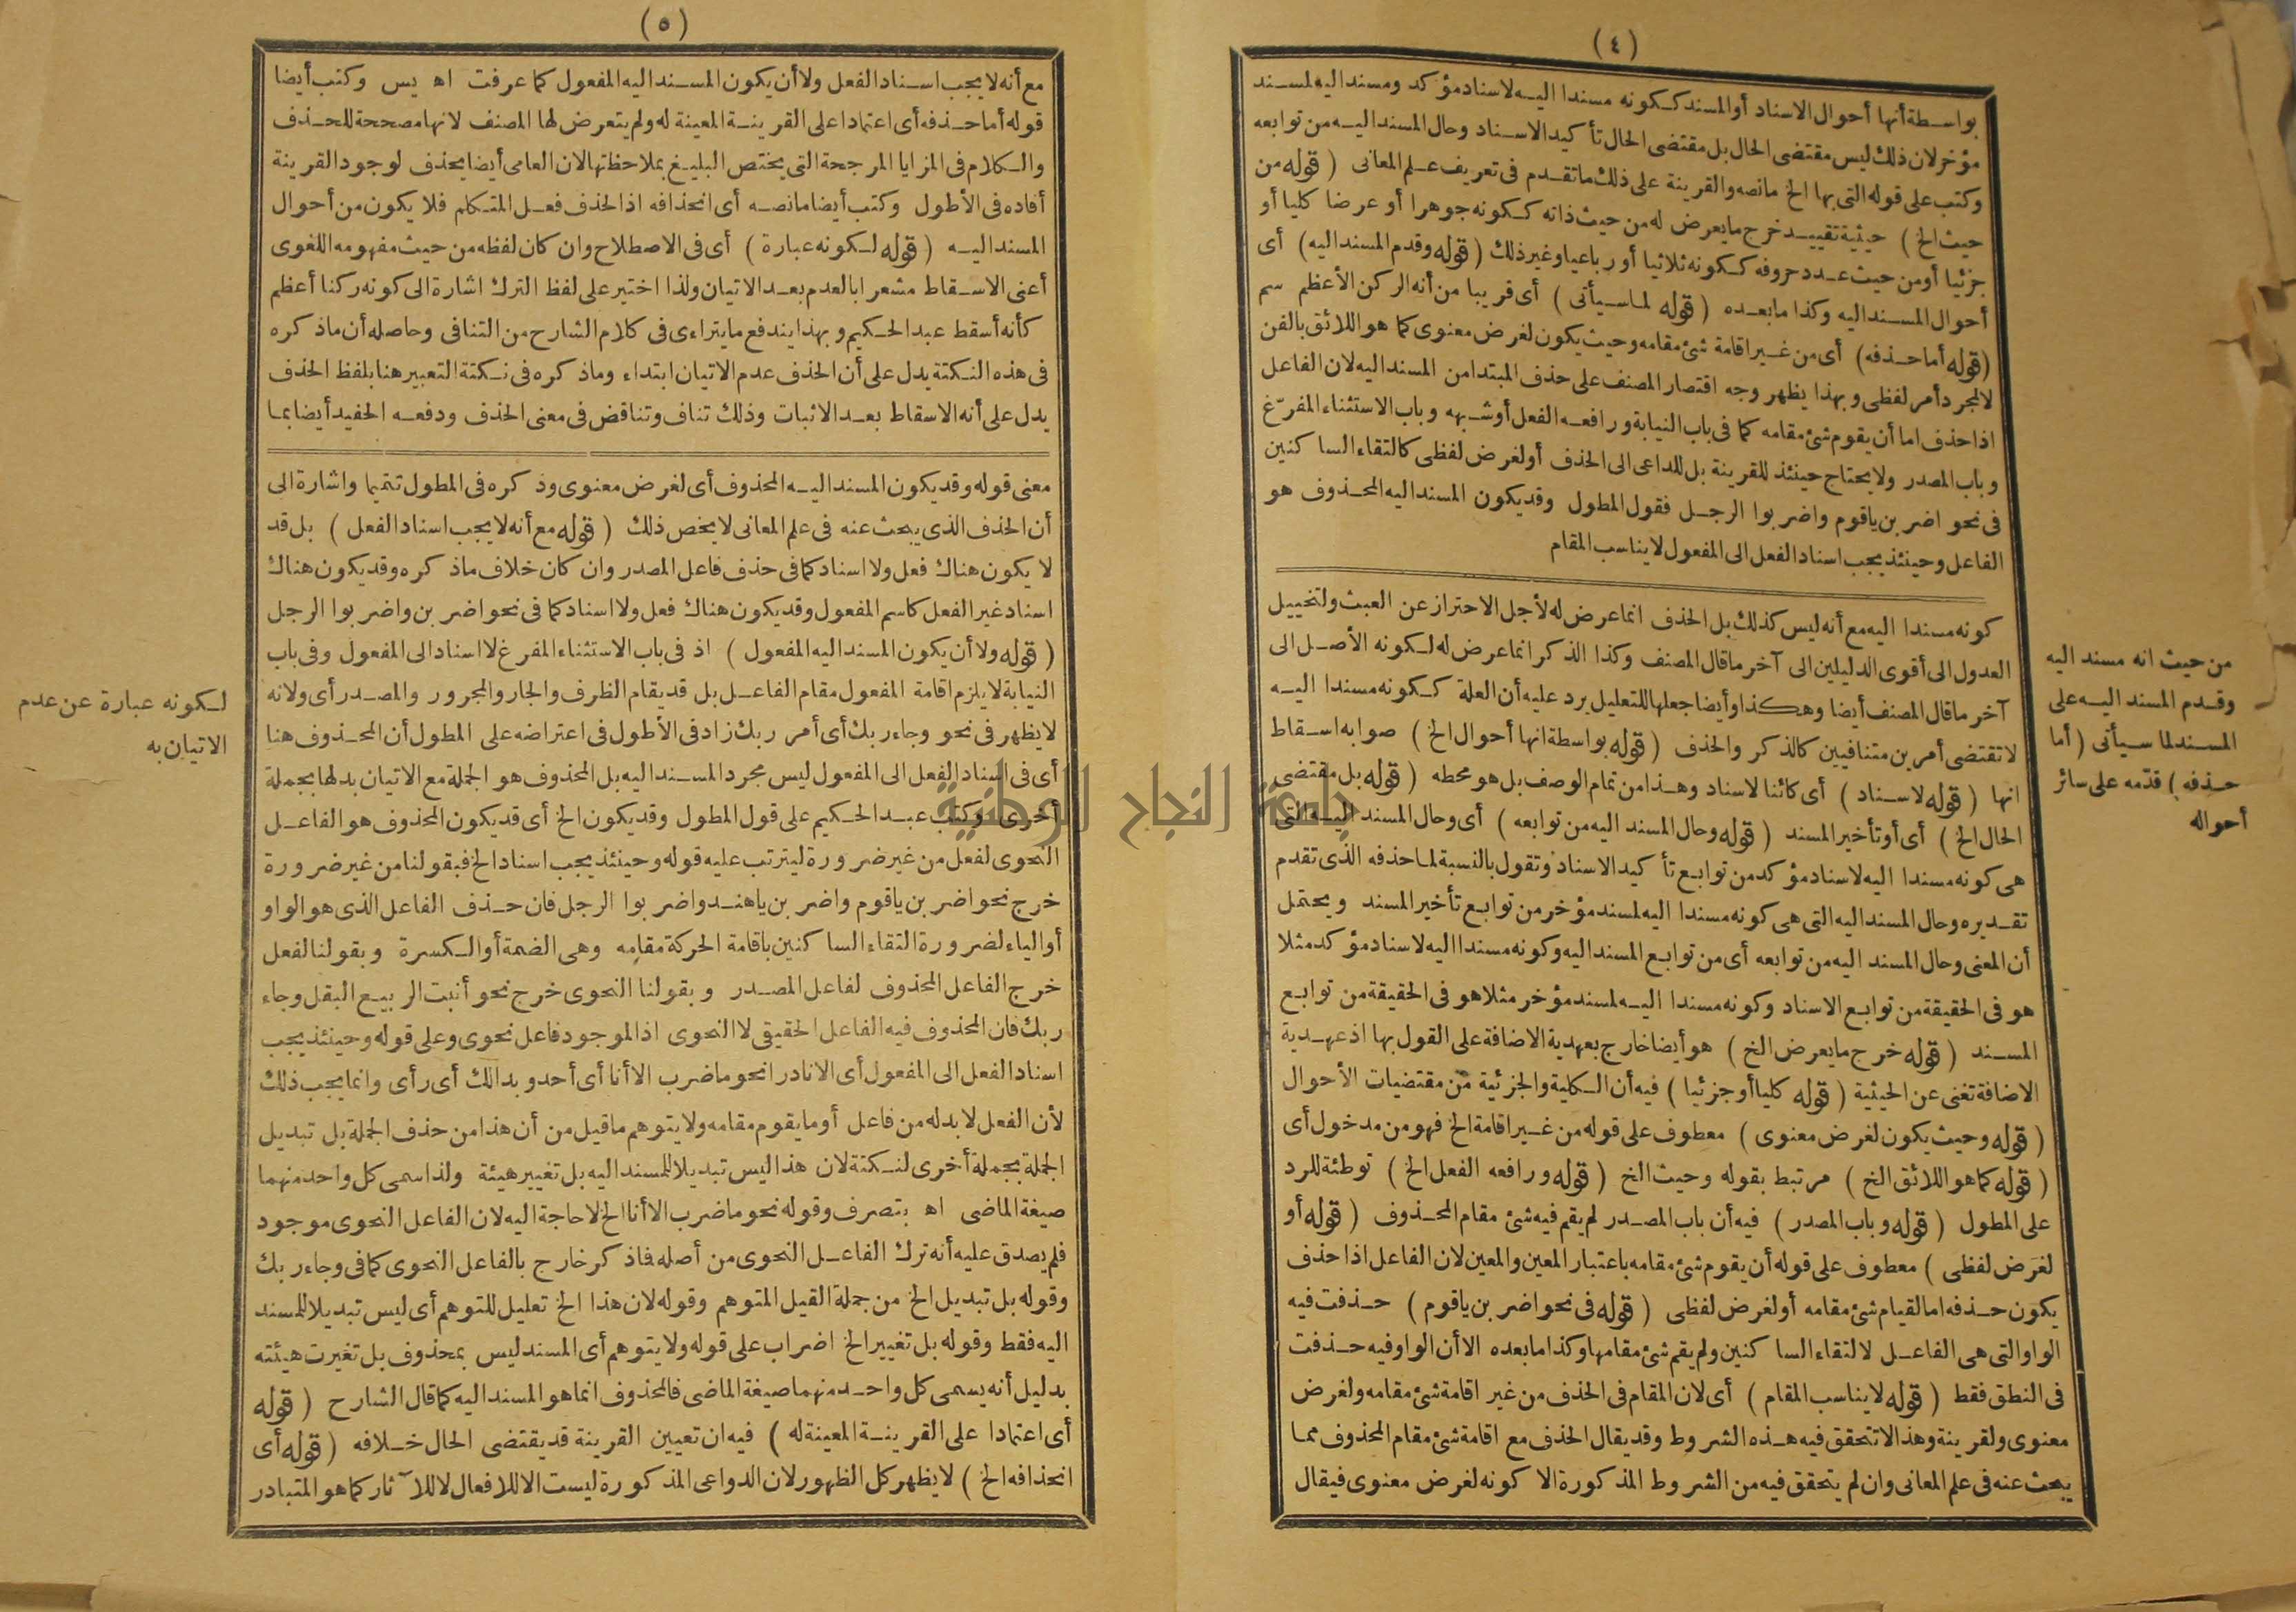 (٤)
بواسطة أنها أحوال الاسناد أو المسند ككونه مسندا اليه لاسناد مؤكد ومسندا اليه لمسند
مؤخر لان ذلك ليس مقتضى الحال بل مقتضى الحال تأكيد الاسناد وحال المسند اليه من توابعه
وكتب على قوله التى بها الخ مانصه والقرينة على ذلك ماتقدم فى تعريف علم المعانى (قوله من
حيث الخ) حيثية تقييد خرج مايعرض له من حيث ذاته ككونه جوهرا أو عرضا كليا أو
جزئيا أو من حيث عدد حروفه ككونه ثلاثيا أو رباعيا وغير ذلك (قوله وقدم المسند اليه) أى
أحوال المسند اليه وكذا مابعده (قوله لما سيأتى) أى قريبا من أنه الركن الأعظم سم
(قوله أما حذفه) أى من غير اقامة شئ مقامه وحيث يكون لغرض معنوى كما هو اللائق بالفن
لالمجرد أمر لفظى وبهذا يظهر وجه اقتصار المصنف على حذف المبتدا من المسند اليه لان الفاعل
اذا حذف اما أن يقوم شئ مقامه كما فى باب النيابة ورافعه الفعل أو شبهه وباب الاستثناء المفرّغ
وباب المصدر ولا يحتاج حينئذ للقرينة بل للداعى الى الحذف أو لغرض لفظى كالتقاء الساكنين
فى نحو اضربن ياقوم واضربوا الرجل فقول المطول وقد يكون المسند اليه المحذوف هو
الفاعل وحينئذ يجب اسناد الفعل الى المفعول لا يناسب المقام
كونه مسندا اليه مع أنه ليس كذلك بل الحذف انما عرض له لأجل الاحتراز عن العبث ولتخييل
العدول الى أقوى الدليلين الى آخر ما قال المصنف وكذا الذكر انما عرض له لكونه الأصل الى
آخر ما قال المصنف أيضا وهكذا وأيضا جعلها للتعليل يرد عليه أن العلة ككونه مسندا اليه
لا تقتضى أمرين متنافيين كالذكر والحذف (قوله بواسطة انها أحوال الخ) صوابه اسقاط
انها (قوله لاسناد) أى كائنا لاسناد وهذا من تمام الوصف بل هو محطه (قوله بل مقتضى
الحال الخ) أى أو تأخير المسند (قوله وحال المسند اليه من توابعه) أى وحال المسند اليه التى
هى كونه مسندا اليه لاسناد مؤكد من توابع تأكيد الاسناد وتقول بالنسبة لما حذفه الذى تقدم
تقديره وحال المسند اليه التى هى كونه مسندا اليه لمسند مؤخر من توابع تأخير المسند ويحتمل
أن المعنى وحال المسند اليه من توابعه أى من توابع المسند اليه وكونه مسندا اليه لاسناد مؤكد مثلا
هو فى الحقيقة من توابع الاسناد وكونه مسندا اليه لمسند مؤخر مثلا هو فى الحقيقة من توابع
المسند (قوله خرج مايعرض الخ) هو أيضا خارج بعهدية الاضافة على القول بها اذ عهدية
الاضافة تغنى عن الحيثية (قوله كليا أو جزئيا) فيه أن الكلية والجزئية من مقتضيات الأحوال
(قوله وحيث يكون لغرض معنوى) معطوف على قوله من غير اقامة الخ فهو من مدخول أى
(قوله كما هو اللائق الخ) مرتبط بقوله وحيث الخ (قوله ورافعه الفعل الخ) توطئة للرد
على المطول (قوله وباب المصدر) فيه أن باب المصدر لم يقم فيه شئ مقام المحذوف (قوله أو
لغرض لفظى) معطوف على قوله أن يقوم شئ مقامه باعتبار المعين والمعين لان الفاعل اذا حذف
يكون حذفه اما لقيام شئ مقامه أو لغرض لفظى (قوله فى نحو اضربن ياقوم) حذفت فيه
الواو التى هى الفاعل لالتقاء الساكنين ولم يقم شئ مقامها وكذا مابعده الا أن الواو فيه حذفت
فى النطق فقط (قوله لا يناسب المقام) أى لان المقام فى الحذف من غير اقامة شئ مقامه ولغرض
معنوى ولقرينة وهذا لا تتحقق فيه هذه الشروط وقد يقال الحذف مع اقامة شئ مقام المحذوف مما
يبحث عنه فى علم المعانى وان لم يتحقق فيه من الشروط المذكورة الا كونه لغرض معنوى فيقال
من حيث انه مسند اليه
وقدم المسند اليه على
المسند لما سيأتى (أما
حذفه) قدّمه على سائر
أحواله
(٥)
مع أنه لا يجب اسناد الفعل ولا أن يكون المسند اليه المفعول كما عرفت اه يس وكتب أيضا
قوله أما حذفه أى اعتمادا على القرينة المعينة له ولم يتعرض لها المصنف لانها مصححة للحذف
والكلام فى المزايا المرجحة التى يختص البليغ بملاحظتها لان العامى أيضا يحذف لوجود القرينة
أفاده فى الأطول وكتب أيضا مانصه أى انحذافه اذ الحذف فعل المتكلم فلا يكون من أحوال
المسند اليه (قوله لكونه عبارة) أى فى الاصطلاح وان كان لفظه من حيث مفهومه اللغوى
أعنى الاسقاط مشعرا بالعدم بعد الاتيان ولذا اختير على لفظ الترك اشارة الى كونه ركنا أعظم
كأنه أسقط عبد الحكيم وبهذا يندفع مايتراءى فى كلام الشارح من التنافى وحاصله أن ماذكره
فى هذه النكتة يدل على أن الحذف عدم الاتيان ابتداء وماذكره فى نكتة التعبير هنا بلفظ الحذف
يدل على أنه الاسقاط بعد الاثبات وذلك تناف وتناقض فى معنى الحذف ودفعه الحفيد أيضا بما
معنى قوله وقد يكون المسند اليه المحذوف أى لغرض معنوى وذكره فى المطول تتميما واشارة الى
أن الحذف الذى يبحث عنه فى علم المعانى لا يخص ذلك (قوله مع أنه لا يجب اسناد الفعل) بل قد
لا يكون هناك فعل ولا اسناد كما فى حذف فاعل المصدر وان كان خلاف ماذكره وقد يكون هناك
اسناد غير الفعل كاسم المفعول وقد يكون هناك فعل ولا اسناد كما فى نحو اضربن واضربوا الرجل
(قوله ولا أن يكون المسند اليه المفعول) اذ فى باب الاستثناء المفرغ لا اسناد الى المفعول وفى باب
النيابة لا يلزم اقامة المفعول مقام الفاعل بل قد يقام الظرف والجار والمجرور والمصدر أى ولانه
لا يظهر فى نحو وجاء ربك أى أمر ربك زاد فى الأطول فى اعتراضه على المطول أن المحذوف هنا
أى فى اسناد الفعل الى المفعول ليس مجرد المسند اليه بل المحذوف هو الجملة مع الاتيان بدلها بجملة
أخرى وكتب عبد الحكيم على قول المطول وقد يكون الخ أى قد يكون المحذوف هو الفاعل
النحوى لفعل من غير ضرورة ليترتب عليه قوله وحينئذ يجب اسناد الخ فبقولنا من غير ضرورة
خرج نحو اضربن ياقوم واضربن ياهند واضربوا الرجل فان حذف الفاعل الذى هو الواو
أو الياء لضرورة التقاء الساكنين باقامة الحركة مقامه وهى الضمة أو الكسرة وبقولنا لفعل
خرج الفاعل المحذوف لفاعل المصدر وبقولنا النحوى خرج نحو أنبت الربيع البقل وجاء
ربك فان المحذوف فيه الفاعل الحقيقى لا النحوى اذ الموجود فاعل نحوى وعلى قوله وحينئذ يجب
اسناد الفعل الى المفعول أى الا نادرا نحو ماضرب الا أنا أى أحد وبدالك أى رأى وانما يجب ذلك
لأن الفعل لا بد له من فاعل أو مايقوم مقامه ولا يتوهم ماقيل من أن هذا من حذف الجملة بل تبديل
الجملة بجملة أخرى لنكتة لان هذا ليس تبديلا للمسند اليه بل تغيير هيئة ولذا سمى كل واحد منهما
صيغة الماضى اه بتصرف وقوله نحو ماضرب الا أنا الخ لا حاجة اليه لان الفاعل النحوى موجود
فلم يصدق عليه أنه ترك الفاعل النحوى من أصله فاذكر خارج بالفاعل النحوى كما فى وجاء ربك
وقوله بل تبديل الخ من جملة القيل المتوهم وقوله لان هذا الخ تعليل للتوهم أى ليس تبديلا للمسند
اليه فقط وقوله بل تغيير الخ اضراب على قوله ولا يتوهم أى المسند ليس بمحذوف بل تغيرت هيئته
بدليل أنه يسمى كل واحد منهما صيغة الماضى فالمحذوف انما هو المسند اليه كما قال الشارح (قوله
أى اعتمادا على القرينة المعينة له) فيه ان تعيين القرينة قد يقتضى الحال خلافه (قوله أى
انحذافه الخ) لا يظهر كل الظهور لان الدواعى المذكورة ليست الا للافعال لا للآثار كما هو المتبادر
لكونه عبارة عن عدم
الاتيان به
جامعة النجاح الوطنية